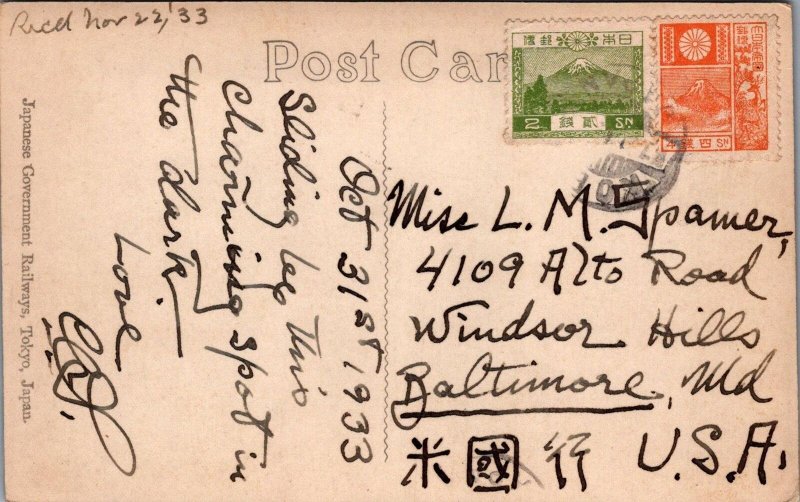 Ricd Nov 22, '33
Post Car
Oct 31st 1933
Sliding by this
charming spot in
the dark.
Love
Japanese Government Railways, Tokyo, Japan.
日本郵便
2 貳銭 SN
大日本帝國郵便
四銭 SN
Miss L. M. Spamer,
4109 Alto Road
Windsor Hills
Baltimore, Md
U.S.A.
米國行